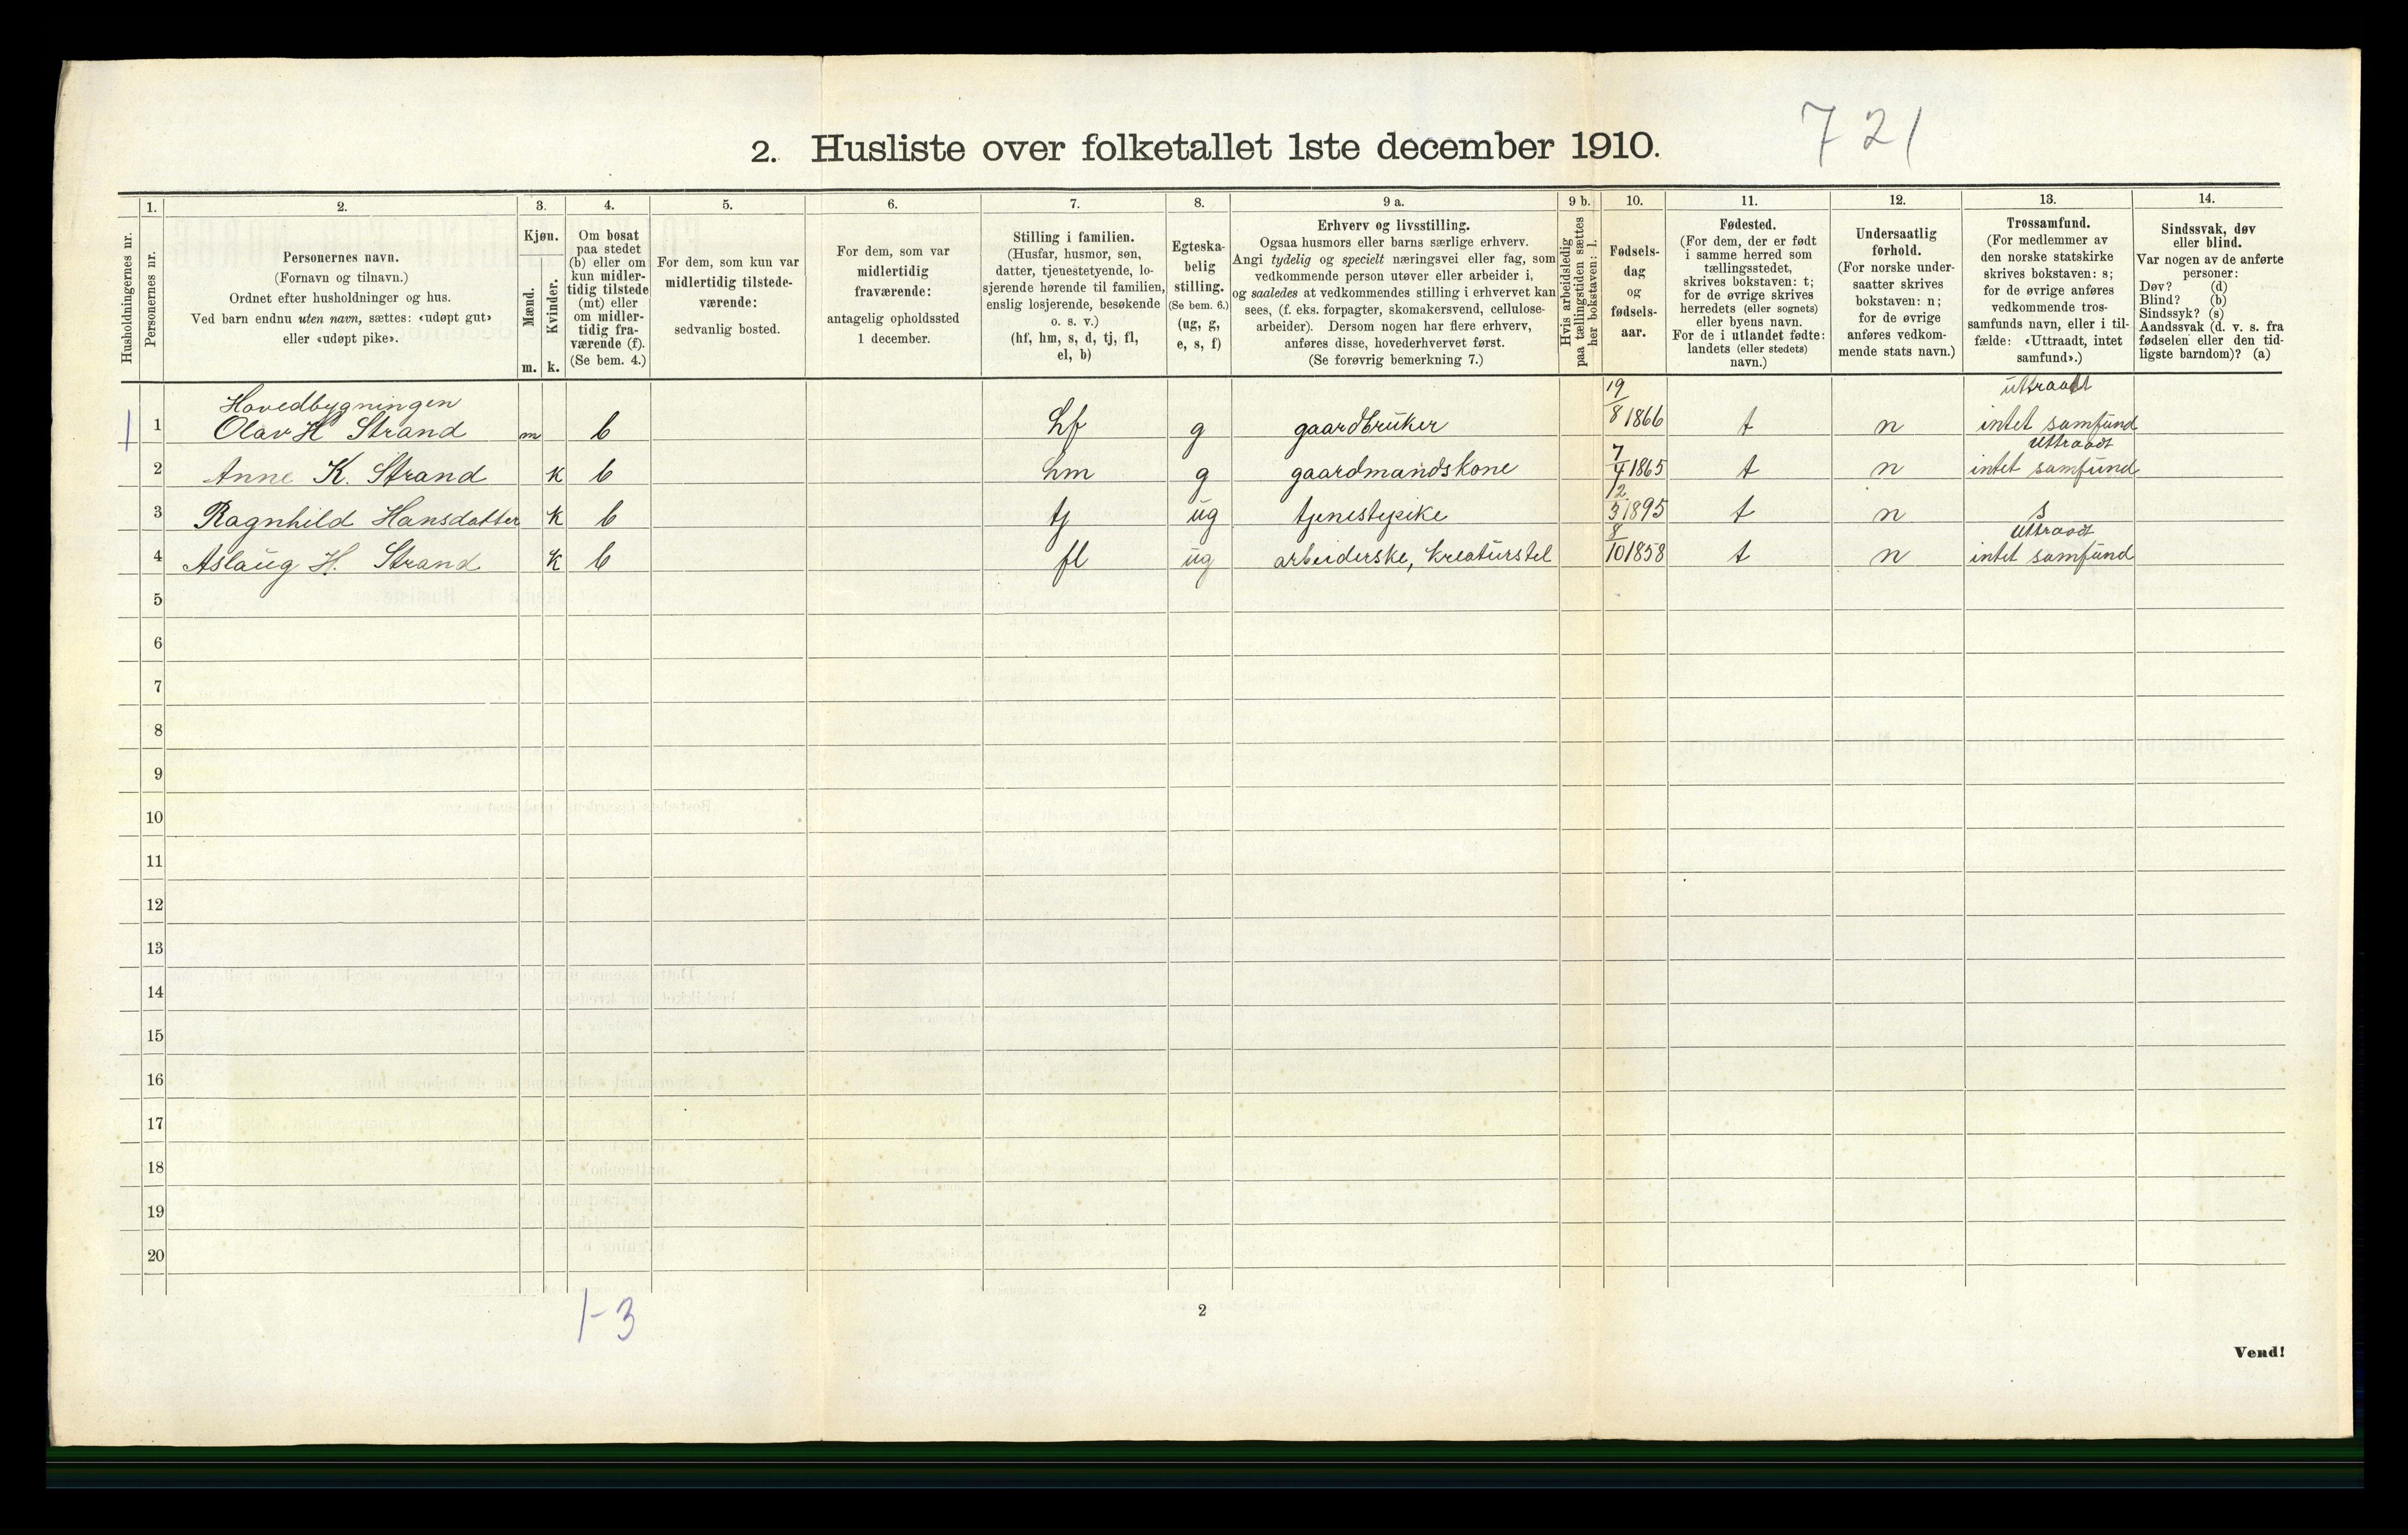 721
2. Husliste over folketallet 1ste december 1910.
Husholdningernes nr.
1.
Personernes nr.
2.
Personernes navn.
(Fornavn og tilnavn.)
Ordnet efter husholdninger og hus.
Ved barn endnu uten navn, sættes: «udøpt gut»
eller «udøpt pike».
3.
Kjøn.
Mænd.
Kvinder.
m. k.
4.
Om bosat
paa stedet
(b) eller om
kun midler-
tidig tilstede
(mt) eller
om midler-
tidig fra-
værende (f).
(Se bem. 4.)
5.
For dem, som kun var
midlertidig tilstede-
værende:
sedvanlig bosted.
6.
For dem, som var
midlertidig
fraværende:
antagelig opholdssted
1 december.
7.
Stilling i familien.
(Husfar, husmor, søn,
datter, tjenestetyende, lo-
sjerende hørende til familien,
enslig losjerende, besøkende
o. s. v.)
(hf, hm, s, d, tj, fl,
el, b)
8.
Egteska-
belig
stilling.
(Se bem. 6.)
(ug, g,
e, s, f)
9 a.
Erhverv og livsstilling.
Ogsaa husmors eller barns særlige erhverv.
Angi tydelig og specielt næringsvei eller fag, som
vedkommende person utøver eller arbeider i,
og saaledes at vedkommendes stilling i erhvervet kan
sees, (f. eks. forpagter, skomakersvend, cellulose-
arbeider). Dersom nogen har flere erhverv,
anføres disse, hovederhvervet først.
(Se forøvrig bemerkning 7.)
9 b.
Hvis arbeidsledig
paa tællingstiden sættes
her bokstaven: l.
10.
Fødsels-
dag
og
fødsels-
aar.
11.
Fødested.
(For dem, der er født
i samme herred som
tællingsstedet,
skrives bokstaven: t;
for de øvrige skrives
herredets (eller sognets)
eller byens navn.
For de i utlandet fødte:
landets (eller stedets)
navn.)
12.
Undersaatlig
forhold.
(For norske under-
saatter skrives
bokstaven: n;
for de øvrige
anføres vedkom-
mende stats navn.)
13.
Trossamfund.
(For medlemmer av
den norske statskirke
skrives bokstaven: s;
for de øvrige anføres
vedkommende tros-
samfunds navn, eller i til-
fælde: «Uttraadt, intet
samfund».)
14.
Sindssvak, døv
eller blind.
Var nogen av de anførte
personer:
Døv? (d)
Blind? (b)
Sindssyk? (s)
Aandssvak (d. v. s. fra
fødselen eller den tid-
ligste barndom)? (a)
Hovedbygningen
1 1 Olav H Strand m b hf g gaardbruker 19/8 1866 t n uttraadt intet samfund
2 Anne K. Strand k b hm g gaardmandskone 7/4 1865 t n uttraadt intet samfund
3 Ragnhild Hansdatter k b tj ug tjenestepike 12/3 1895 t n s
4 Aslaug H. Strand k b fl ug arbeiderske, kreaturstel 8/10 1858 t n uttraadt intet samfund
5
6
7
8
9
10
11
12
13
14
15
16
17
18
19
20
1-3
2
Vend!